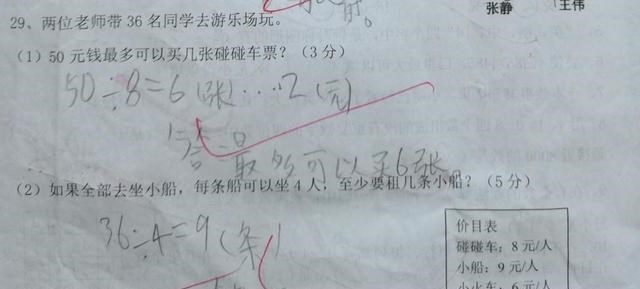 张静 王伟
29、两位老师带 36 名同学去游乐场玩。
(1) 50 元钱最多可以买几张碰碰车票？（3 分）
50÷8=6(张)…2(元)
答:最多可以买6张。
(2) 如果全部去坐小船，每条船可以坐 4 人，至少要租几条小船？（5 分）
36÷4=9(条)
价目表
碰碰车：8 元/人
小船：9 元/人
小火车：6 元/人